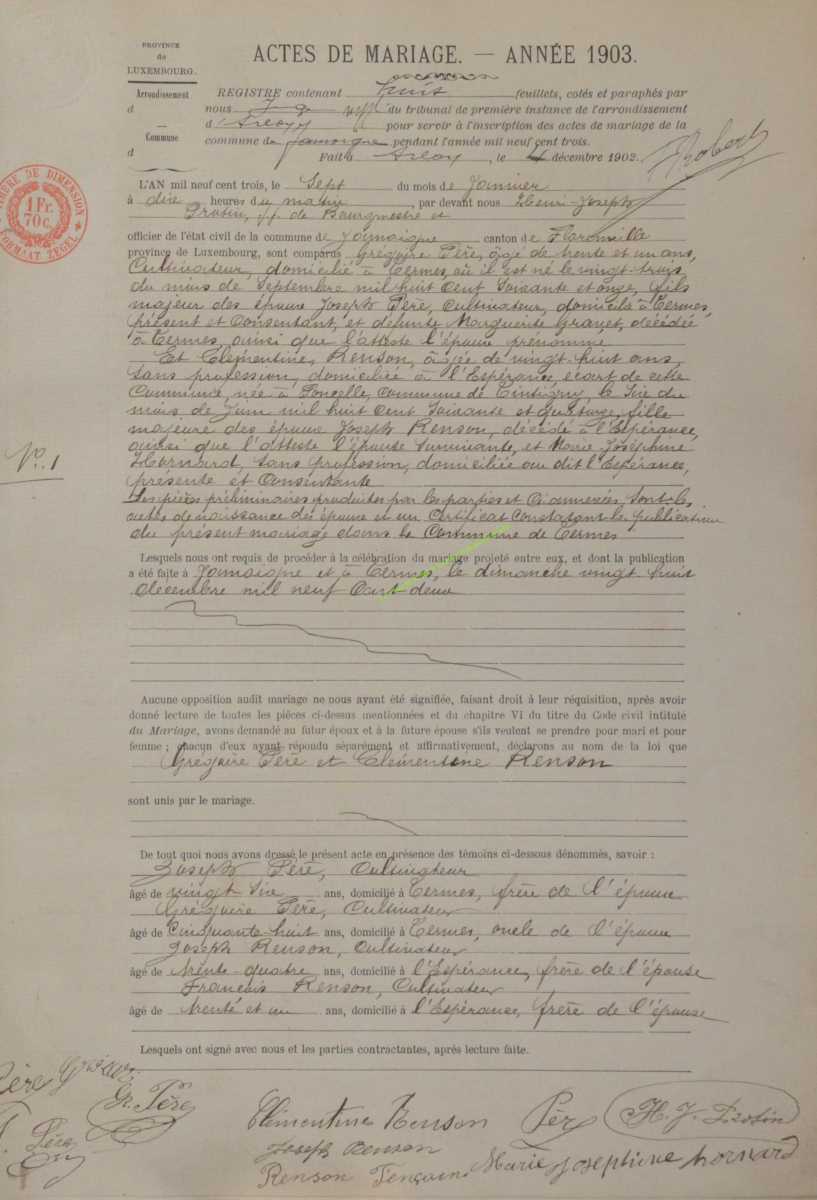 PROVINCE
de
LUXEMBOURG.
Arrondissement
d
Commune
d
1 Fr.
70c.
ACTES DE MARIAGE. — ANNÉE 1903.
REGISTRE contenant huit feuillets, cotés et paraphés par
nous du tribunal de première instance de l'arrondissement
d'Arlon pour servir à l'inscription des actes de mariage de la
commune de Jamoigne pendant l'année mil neuf cent trois.
Fait à Arlon, le décembre 1902.
Robert
N° 1
L'AN mil neuf cent trois, le Sept du mois de Janvier
à dix heures du matin, par devant nous Henri-Joseph
de Bourgmestre et
officier de l'état civil de la commune de Jamoigne canton de Florenville
province de Luxembourg, sont comparus Grégoire Père, âgé de trente et un ans,
Cultivateur, domicilié à Termes, où il est né le vingt-trois
du mois de Septembre mil huit cent soixante et onze, fils
majeur des époux Joseph Père, Cultivateur, domicilié à Termes,
présent et consentant, et défunte Marguerite Grayet, décédée
à Termes, ainsi que l'atteste l'époux prénommé
Et Clémentine, Renson, âgée de vingt-huit ans,
Sans profession, domiciliée à l'Espérance, écart de cette
Commune, née à Poncelle, commune de Tintigny, le Six du
mois de Juin mil huit cent soixante et quatorze, fille
majeure des époux Joseph Renson, décédé à l'Espérance,
ainsi que l'atteste l'épouse survivante, et Marie Joséphine
Hornard, sans profession, domiciliée au dit l'Espérance,
présente et consentante
Les pièces préliminaires produites par les parties et ci-annexées sont les
actes de naissance des époux et un certificat constatant la publication
du présent mariage dans la commune de Termes
Lesquels nous ont requis de procéder à la célébration du mariage projeté entre eux, et dont la publication
a été faite à Jamoigne et à Termes, le dimanche vingt huit
décembre mil neuf cent deux
Aucune opposition audit mariage ne nous ayant été signifiée, faisant droit à leur réquisition, après avoir
donné lecture de toutes les pièces ci-dessus mentionnées et du chapitre VI du titre du Code civil intitulé
du Mariage, avons demandé au futur époux et à la future épouse s'ils veulent se prendre pour mari et pour
femme ; chacun d'eux ayant répondu séparément et affirmativement, déclarons au nom de la loi que
Grégoire Père et Clémentine Renson
sont unis par le mariage.
De tout quoi nous avons dressé le présent acte en présence des témoins ci-dessous dénommés, savoir :
Joseph Père, Cultivateur
âgé de vingt six ans, domicilié à Termes, frère de l'époux
Grégoire Père, Cultivateur
âgé de Cinquante-huit ans, domicilié à Termes, oncle de l'époux
Joseph Renson, Cultivateur
âgé de trente-quatre ans, domicilié à l'Espérance, frère de l'épouse
François Renson, Cultivateur
âgé de trente et un ans, domicilié à l'Espérance, frère de l'épouse
Lesquels ont signé avec nous et les parties contractantes, après lecture faite.
Père
Gr. Père
Clémentine Renson
Joseph Renson
Renson
Marie Josephine Hornard
H. J.